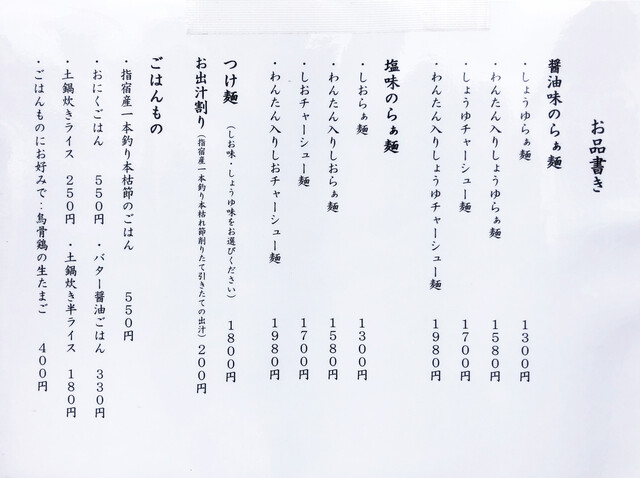 お品書き
醤油味のらぁ麺
・しょうゆらぁ麺　１３００円
・わんたん入りしょうゆらぁ麺　１５８０円
・しょうゆチャーシュー麺　１７００円
・わんたん入りしょうゆチャーシュー麺　１９８０円
塩味のらぁ麺
・しおらぁ麺　１３００円
・わんたん入りしおらぁ麺　１５８０円
・しおチャーシュー麺　１７００円
・わんたん入りしおチャーシュー麺　１９８０円
つけ麺　（しお味・しょうゆ味をお選びください）　１８００円
お出汁割り（指宿産一本釣り本枯れ節削りたて引きたての出汁）２００円
ごはんもの
・指宿産一本釣り本枯節のごはん　５５０円
・おにくごはん　５５０円　・バター醤油ごはん　３３０円
・土鍋炊きライス　２５０円　・土鍋炊き半ライス　１８０円
・ごはんものにお好みで…烏骨鶏の生たまご　４００円